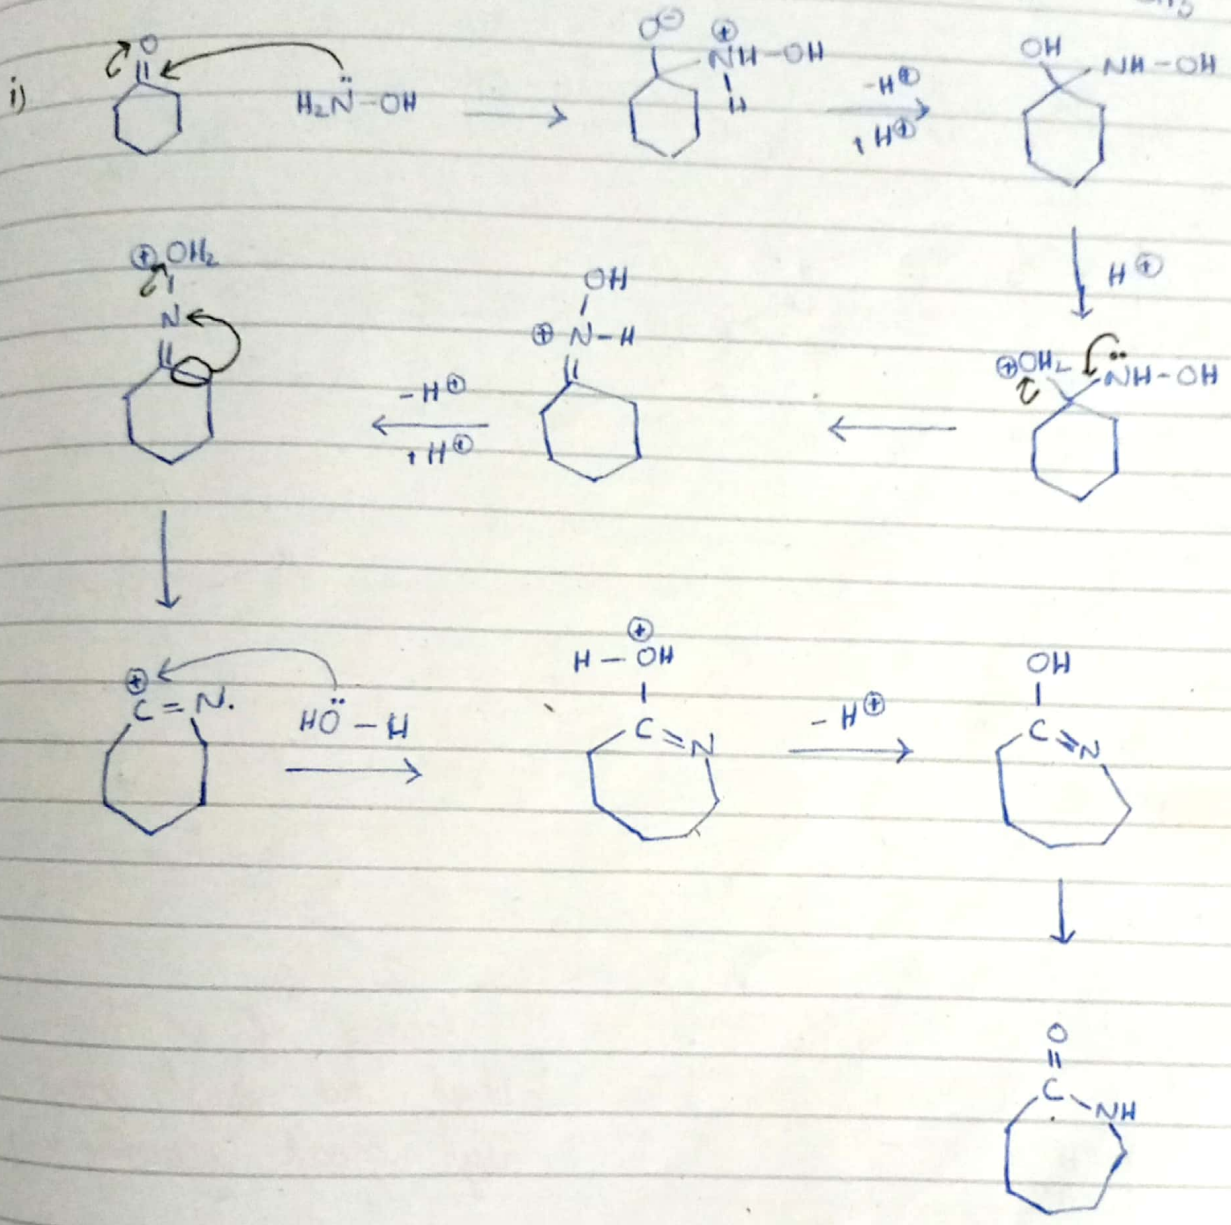 i) O H₂N̈ – OH O⊖ ⊕NH–OH H –H⊕ +H⊕ OH NH–OH
H⊕
⊕OH₂ N –H⊕ +H⊕ OH ⊕N–H ⊕OH₂ N̈H–OH
⊕C=N. HÖ–H H–⊕OH C=N –H⊕ OH C=N
O
C NH